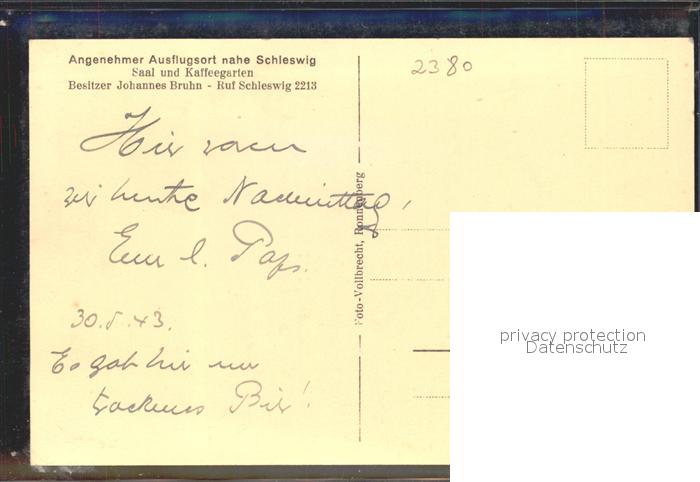 Angenehmer Ausflugsort nahe Schleswig
Saal und Kaffeegarten
Besitzer Johannes Bruhn - Ruf Schleswig 2213
2380
Hier waren
wir heute Nachmittag,
Euer l. Paps.
30.5.43.
Es gab hier nur
trockenes Bier!
Foto-Vollbrecht, Ronnenberg
privacy protection
Datenschutz